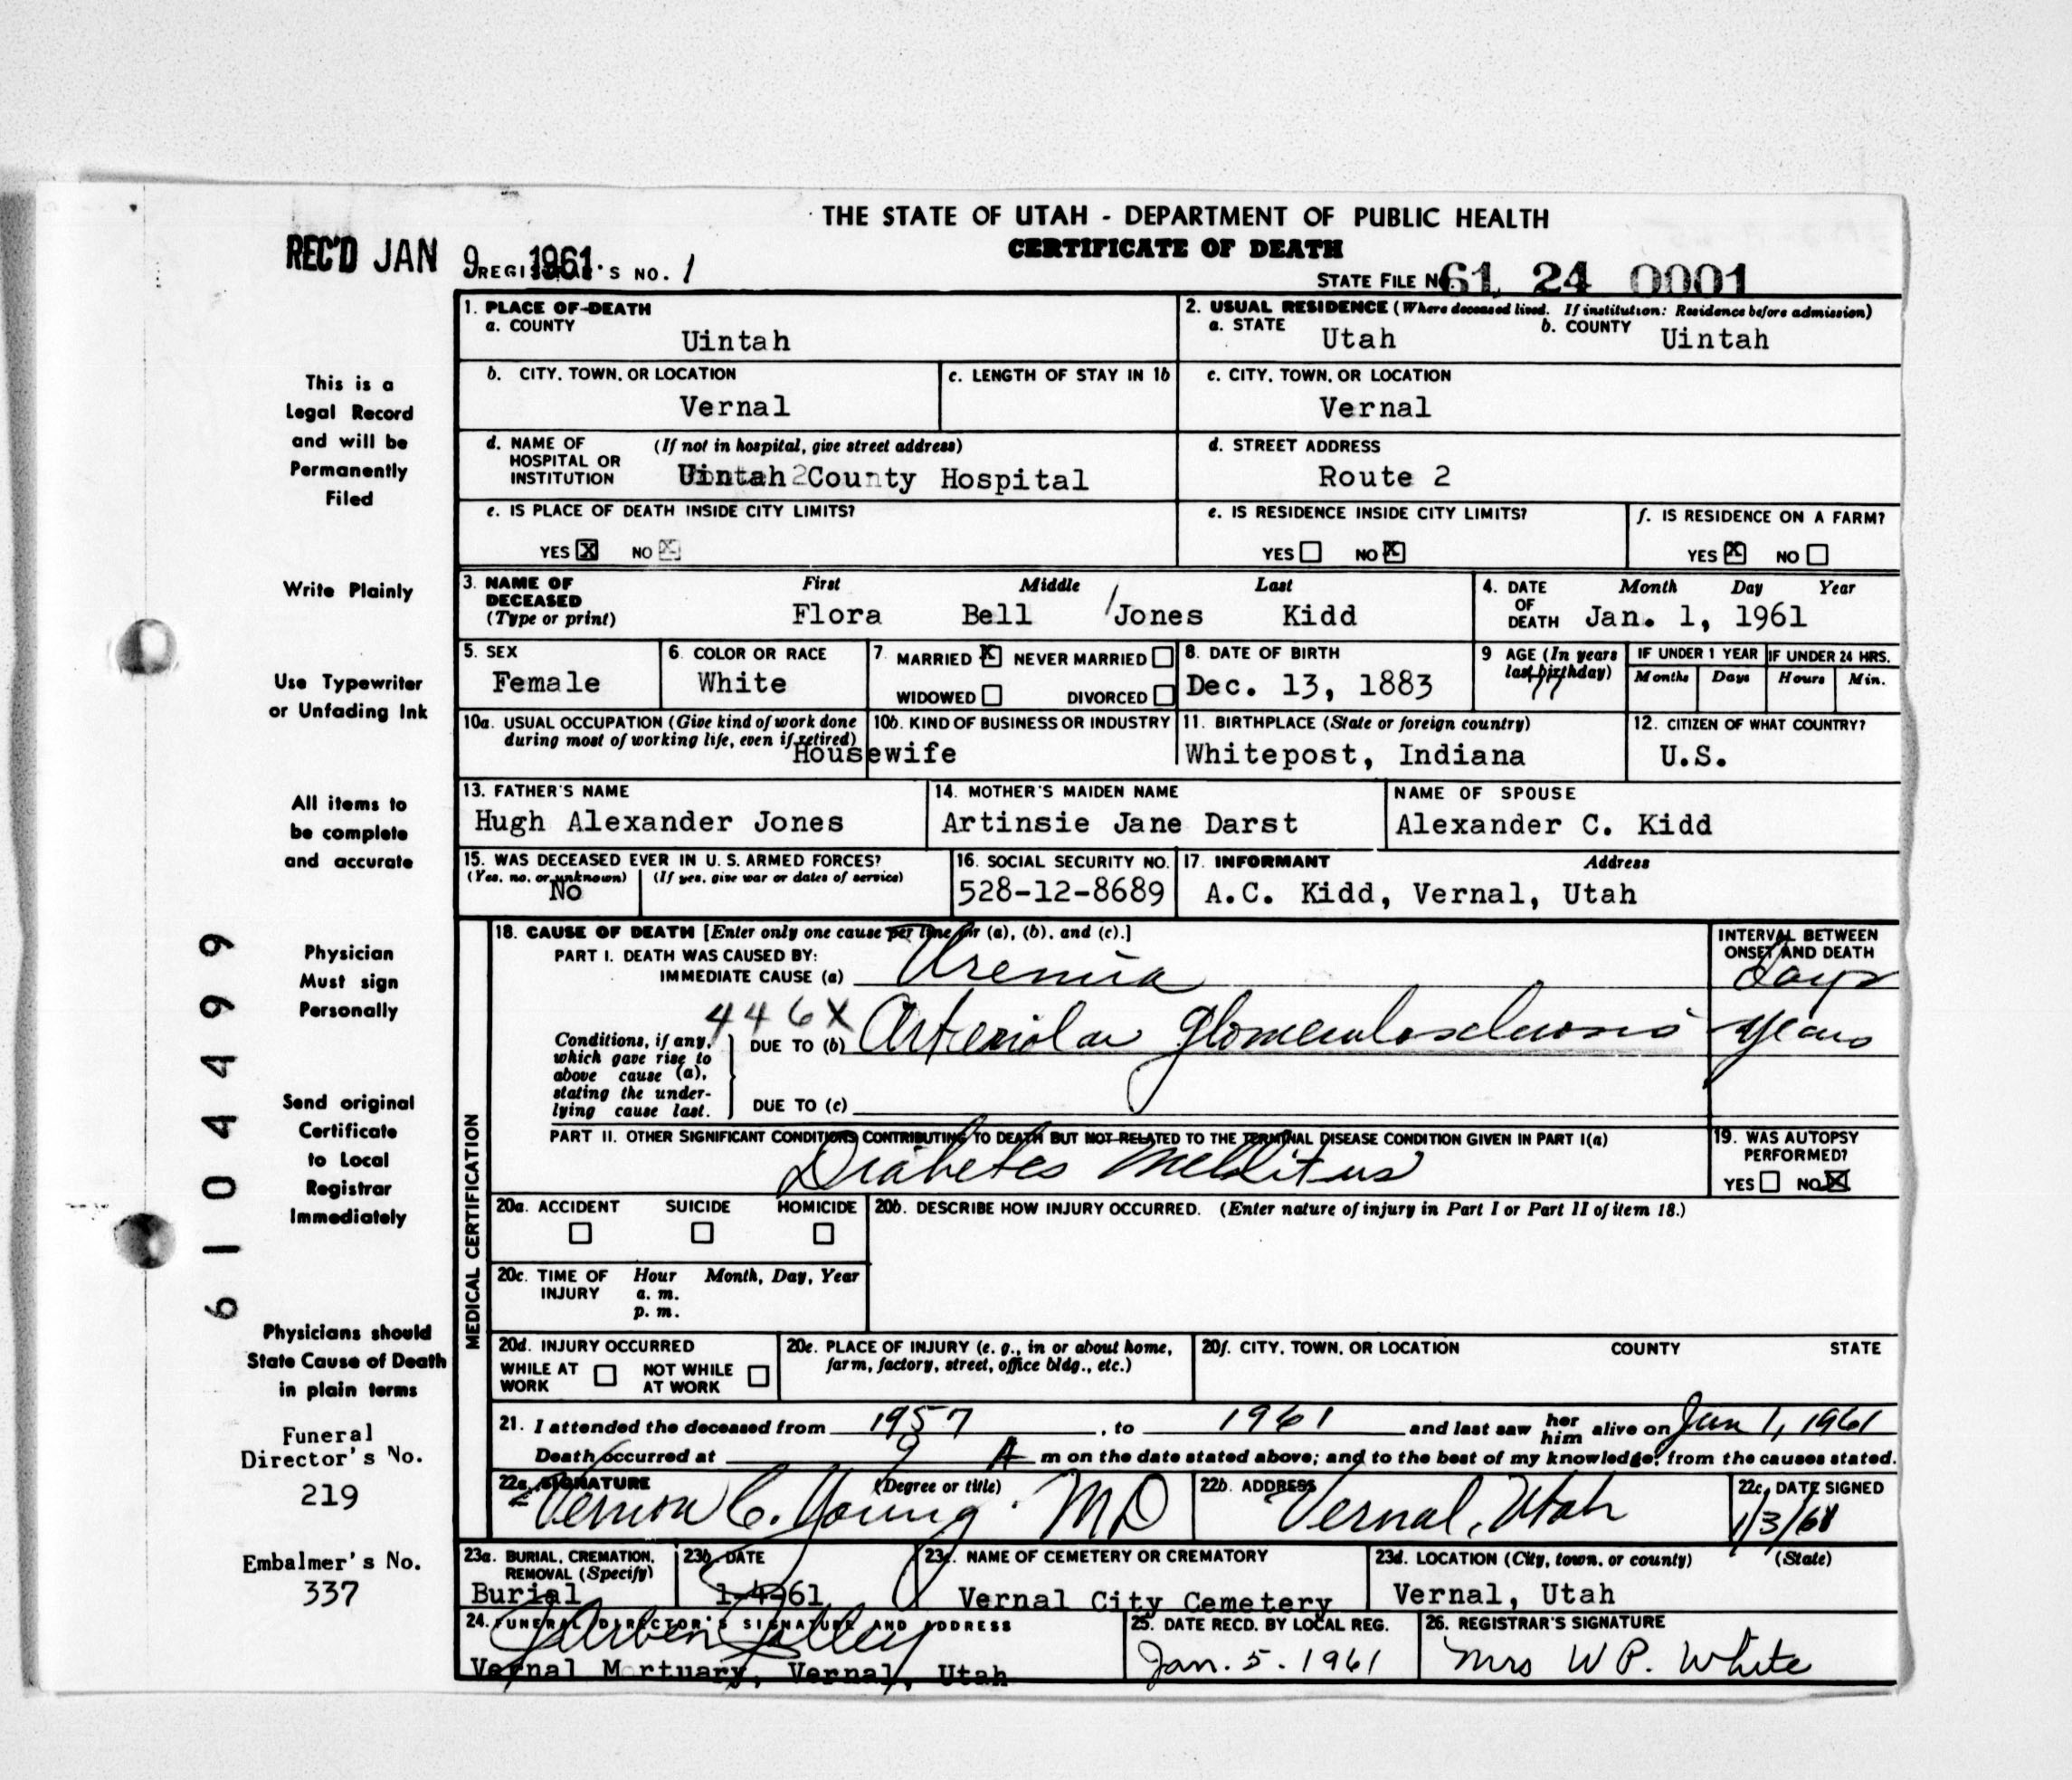 THE STATE OF UTAH - DEPARTMENT OF PUBLIC HEALTH
CERTIFICATE OF DEATH
REC'D JAN 9 1961
REGISTRAR'S NO. 1
STATE FILE NO. 61 24 0001
This is a
Legal Record
and will be
Permanently
Filed
Write Plainly
Use Typewriter
or Unfading Ink
All items to
be complete
and accurate
Physician
Must sign
Personally
Send original
Certificate
to Local
Registrar
Immediately
Physicians should
State Cause of Death
in plain terms
Funeral
Director's No.
219
Embalmer's No.
337
6104499
1. PLACE OF DEATH
a. COUNTY
Uintah
2. USUAL RESIDENCE (Where deceased lived. If institution: Residence before admission)
a. STATE Utah b. COUNTY Uintah
b. CITY, TOWN, OR LOCATION
Vernal
c. LENGTH OF STAY IN 1b
c. CITY, TOWN, OR LOCATION
Vernal
d. NAME OF HOSPITAL OR INSTITUTION (If not in hospital, give street address)
Uintah County Hospital
d. STREET ADDRESS
Route 2
e. IS PLACE OF DEATH INSIDE CITY LIMITS?
YES X NO
e. IS RESIDENCE INSIDE CITY LIMITS?
YES NO X
f. IS RESIDENCE ON A FARM?
YES X NO
3. NAME OF DECEASED (Type or print)
First Middle Last
Flora Bell / Jones Kidd
4. DATE OF DEATH Month Day Year
Jan. 1, 1961
5. SEX
Female
6. COLOR OR RACE
White
7. MARRIED X NEVER MARRIED
WIDOWED DIVORCED
8. DATE OF BIRTH
Dec. 13, 1883
9 AGE (In years last birthday)
77
IF UNDER 1 YEAR IF UNDER 24 HRS.
Months Days Hours Min.
10a. USUAL OCCUPATION (Give kind of work done during most of working life, even if retired)
Housewife
10b. KIND OF BUSINESS OR INDUSTRY
11. BIRTHPLACE (State or foreign country)
Whitepost, Indiana
12. CITIZEN OF WHAT COUNTRY?
U.S.
13. FATHER'S NAME
Hugh Alexander Jones
14. MOTHER'S MAIDEN NAME
Artinsie Jane Darst
NAME OF SPOUSE
Alexander C. Kidd
15. WAS DECEASED EVER IN U. S. ARMED FORCES?
(Yes, no, or unknown) (If yes, give war or dates of service)
No
16. SOCIAL SECURITY NO.
528-12-8689
17. INFORMANT Address
A.C. Kidd, Vernal, Utah
MEDICAL CERTIFICATION
18. CAUSE OF DEATH [Enter only one cause per line for (a), (b), and (c).]
PART I. DEATH WAS CAUSED BY:
IMMEDIATE CAUSE (a) Uremia
INTERVAL BETWEEN ONSET AND DEATH
days
446X
Conditions, if any, which gave rise to above cause (a), stating the underlying cause last.
DUE TO (b) Arteriolar glomerulosclerosis years
DUE TO (c)
PART II. OTHER SIGNIFICANT CONDITIONS CONTRIBUTING TO DEATH BUT NOT RELATED TO THE TERMINAL DISEASE CONDITION GIVEN IN PART I(a)
Diabetes Mellitus
19. WAS AUTOPSY PERFORMED?
YES NO X
20a. ACCIDENT SUICIDE HOMICIDE
20b. DESCRIBE HOW INJURY OCCURRED. (Enter nature of injury in Part I or Part II of item 18.)
20c. TIME OF INJURY Hour Month, Day, Year
a. m.
p. m.
20d. INJURY OCCURRED
WHILE AT WORK NOT WHILE AT WORK
20e. PLACE OF INJURY (e. g., in or about home, farm, factory, street, office bldg., etc.)
20f. CITY, TOWN, OR LOCATION COUNTY STATE
21. I attended the deceased from 1957, to 1961 and last saw her him alive on Jan 1, 1961
Death occurred at 9 A m on the date stated above; and to the best of my knowledge, from the causes stated.
22a. SIGNATURE (Degree or title)
Vernon C. Young MD
22b. ADDRESS
Vernal, Utah
22c. DATE SIGNED
1/3/61
23a. BURIAL, CREMATION, REMOVAL (Specify)
Burial
23b. DATE
1-4-61
23c. NAME OF CEMETERY OR CREMATORY
Vernal City Cemetery
23d. LOCATION (City, town, or county) (State)
Vernal, Utah
24. FUNERAL DIRECTOR'S SIGNATURE AND ADDRESS
Vernal Mortuary, Vernal, Utah
25. DATE RECD. BY LOCAL REG.
Jan. 5. 1961
26. REGISTRAR'S SIGNATURE
Mrs W P. White